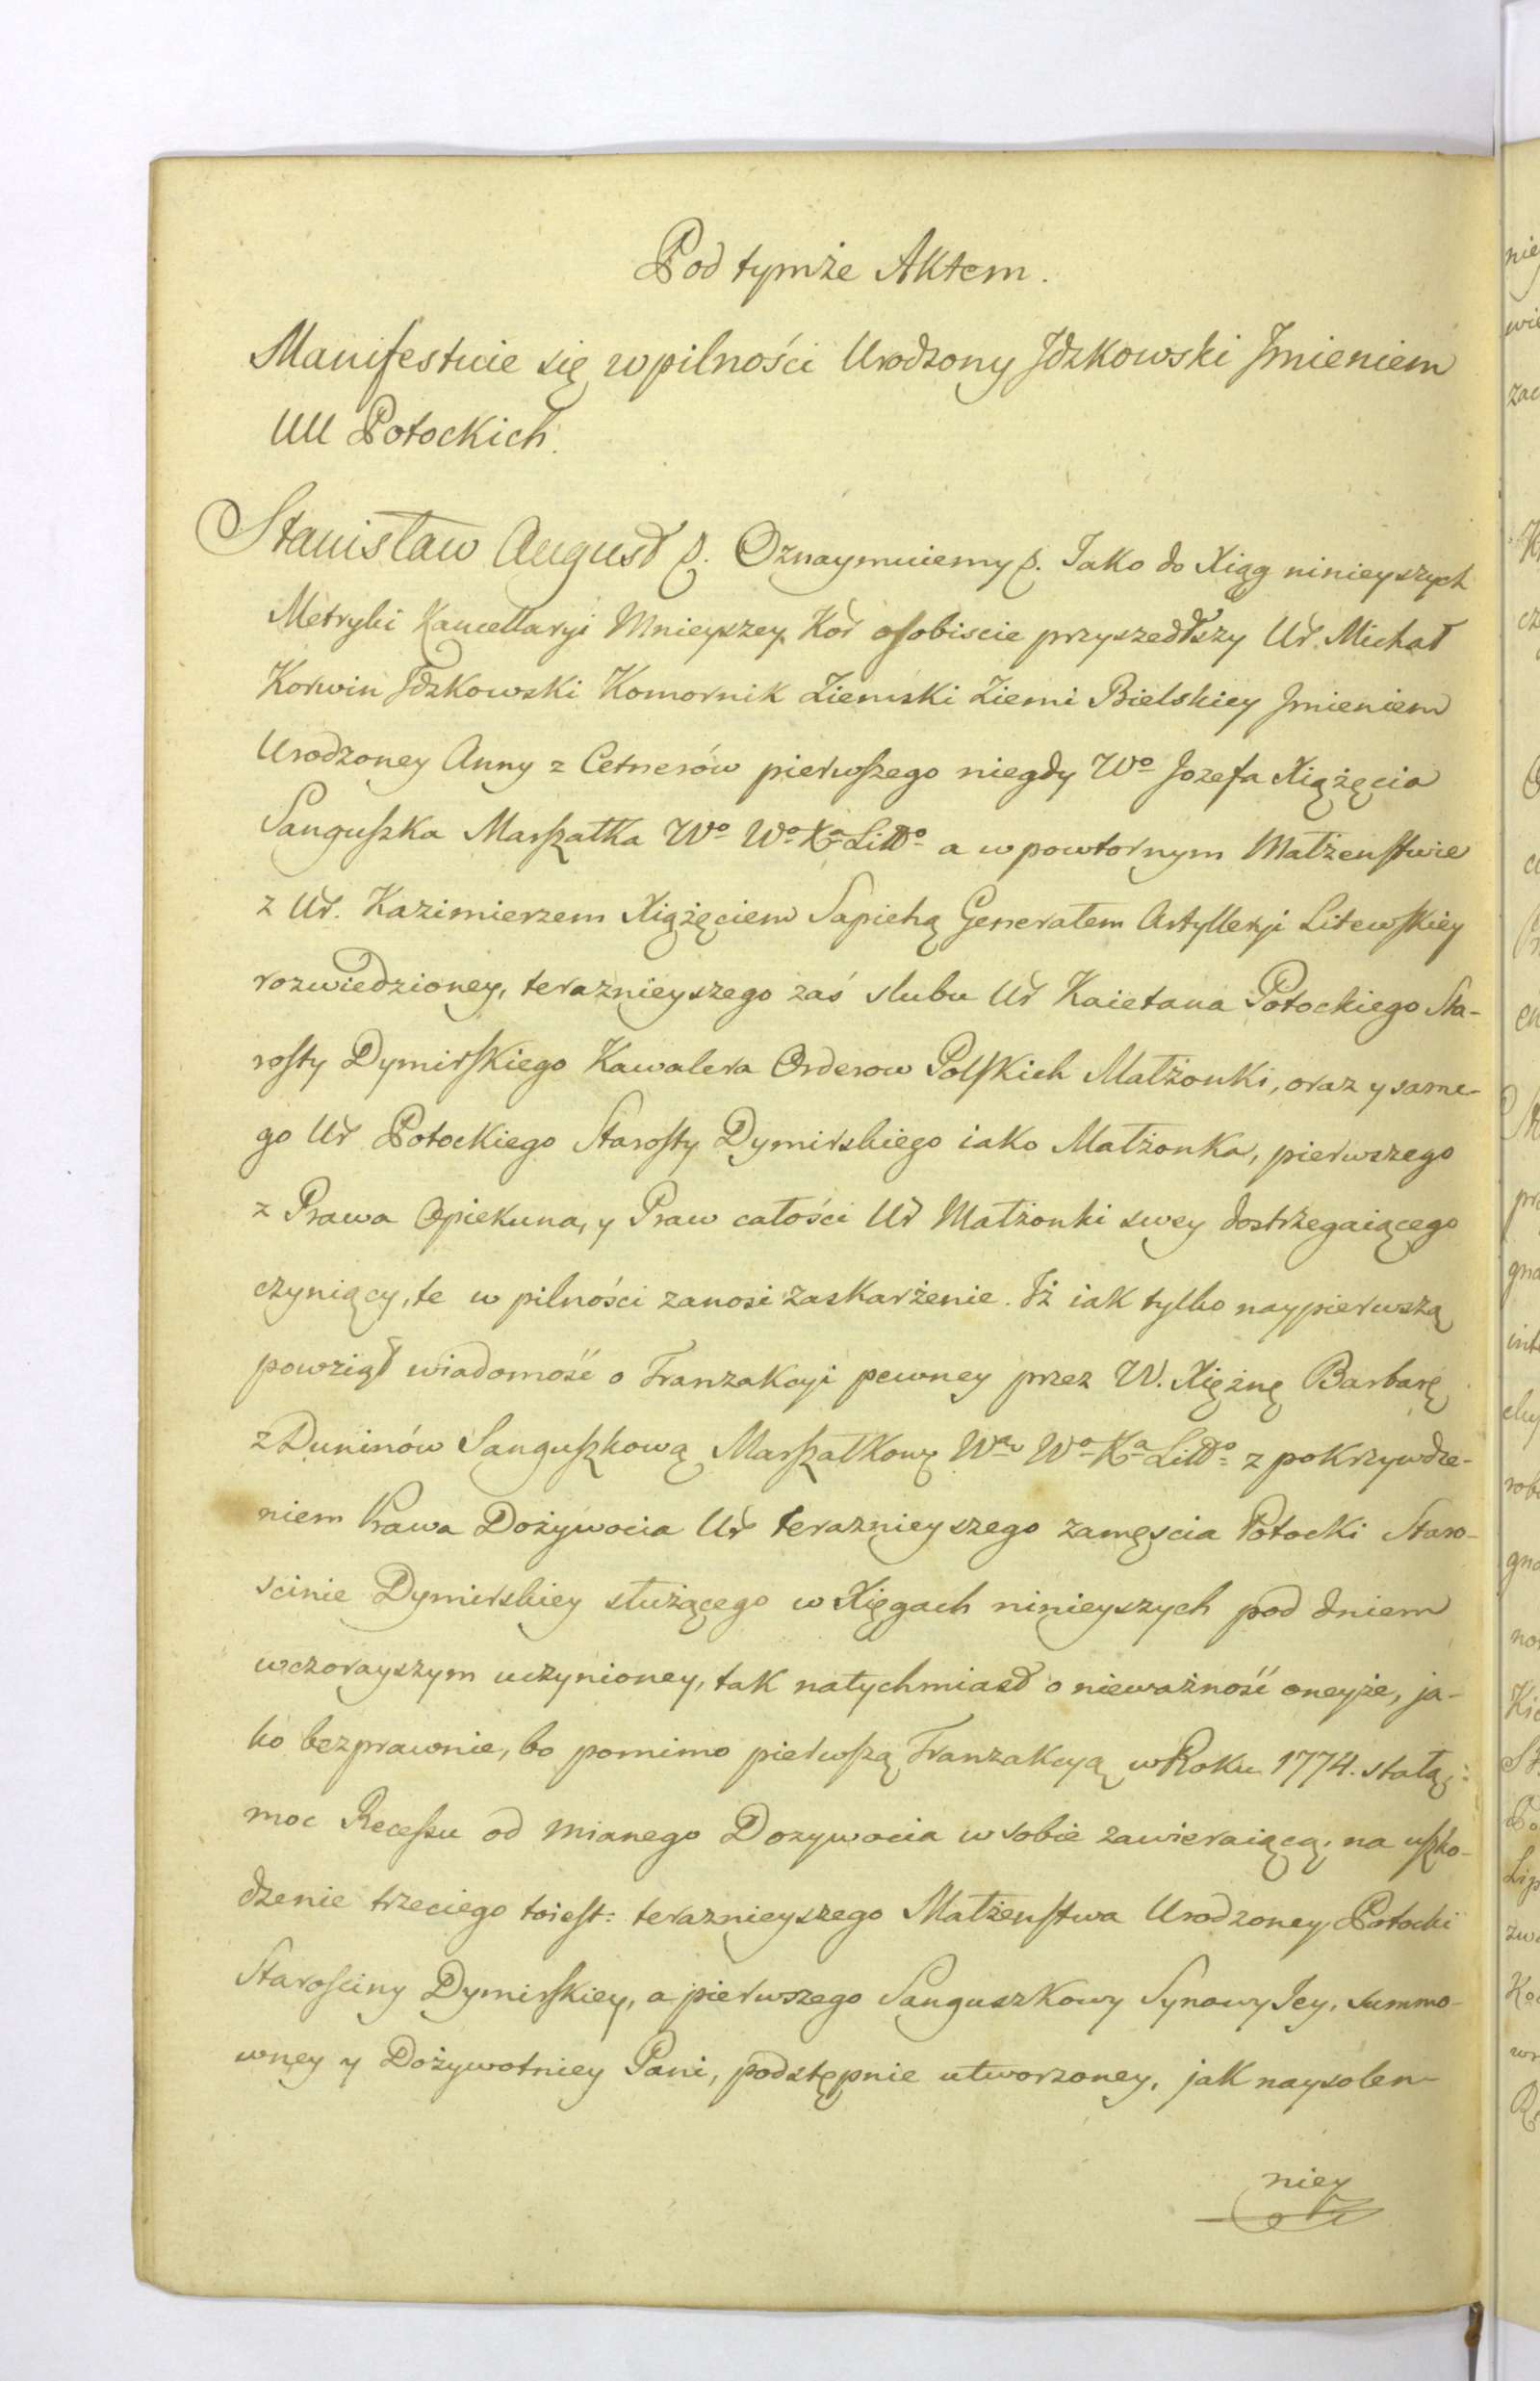 Pod tymże Aktem.
Manifestuie się w pilności Urodzony Idzkowski Imieniem
UU Potockich.
Stanisław August &. Oznaymuiemy &. Jako do Xiąg ninieyszych
Metryki Kancellaryi Mnieyszey Kor osobiscie przyszedłszy Ur. Michał
Korwin Idzkowski Komornik Ziemski Ziemi Bielskiey Imieniem
Urodzoney Anny z Cetnerów pierwszego niegdy Wo Jozefa Xiążęcia
Sanguszka Marszałka Wo Wo Xa Litto a w powtornym Małżenstwie
z Ur. Kazimierzem Xiążęciem Sapiehą Generałem Artylleryi Litewskiey
rozwiedzioney, teraznieyszego zaś slubu Ur Kaietana Potockiego Sta-
rosty Dymirskiego Kawalera Orderow Polskich Małżonki, oraz y same-
go Ur Potockiego Starosty Dymirskiego iako Małżonka, pierwszego
z Prawa Opiekuna, y Praw całości Ur Małżonki swey dostrzegaiącego
czyniący, te w pilności zanosi zaskarżenie. Iż iak tylko naypierwszą
powziął wiadomość o Tranzakcyi pewney przez W. Xiężnę Barbarę
z Duninów Sanguszkową Marszałkową Wa Wo Xa Litto z pokrzywdze-
niem Prawa Dożywocia Ur teraznieyszego zamęscia Potocki Staro-
scinie Dymirskiey służącego w Xięgach ninieyszych pod dniem
wczorayszym uczynioney, tak natychmiast o nieważność oneyże, ja-
ko bezprawnie, bo pomimo pierwszą Tranzakcyą w Roku 1774. stałą,
moc Recessu od mianego Dozywocia w sobie zawieraiącą, na uszko-
dzenie trzeciego toiest: teraznieyszego Małżenstwa Urodzoney Potocki
Starosciny Dymirskiey, a pierwszego Sanguszkowy Synowy Jey, summo-
wney y Dożywotniey Pani, podstępnie utworzoney, jak naysolen-
niey